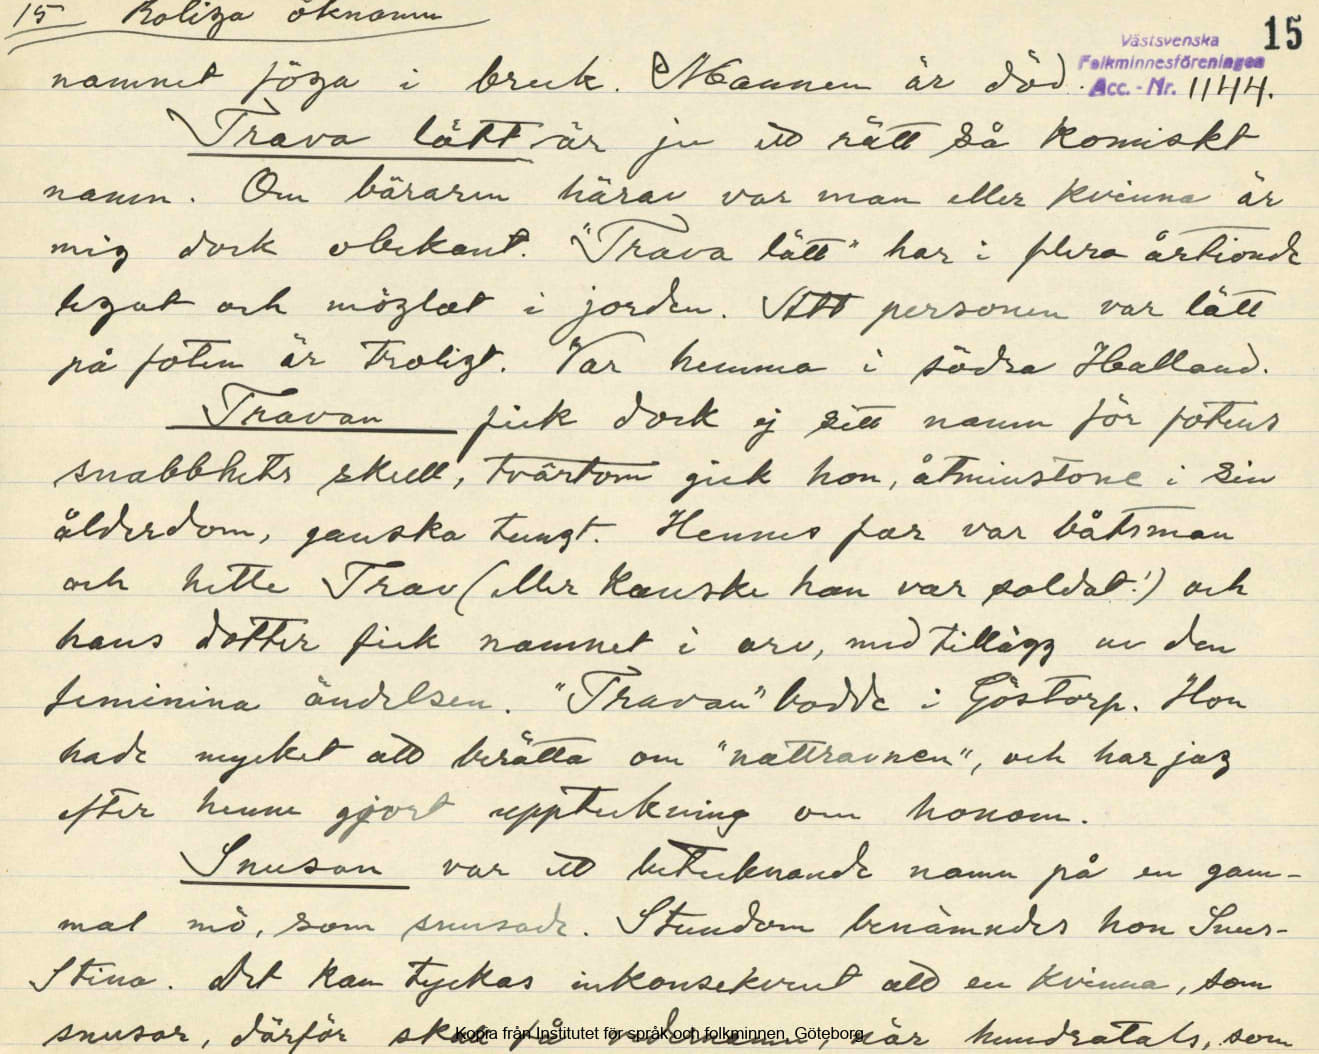 15 Roliga öknamn
15
Västsvenska
Folkminnesföreningen
Acc. - Nr. 1144.
namnet föga i bruk. Mannen är död.
Trava lätt är ju ett rätt så komiskt
namn. Om bäraren härav var man eller kvinna är
mig dock obekant. "Trava lätt" har i flera årtionde
legat och möglat i jorden. Att personen var lätt
på foten är troligt. Var hemma i södra Halland.
Travan fick dock ej sitt namn för fotens
snabbhets skull, tvärtom gick hon, åtminstone i sin
ålderdom, ganska tungt. Hennes far var båtsman
och hette Trav (eller kanske han var soldat!) och
hans dotter fick namnet i arv, med tillägg av den
feminina ändelsen. "Travan" bodde i Göstorp. Hon
hade mycket att berätta om "nattravnen", och har jag
efter henne gjort uppteckning om honom.
Snusan var ett betecknande namn på en gam-
mal mö, som snusade. Stundom benämndes hon Snus-
Stina. Det kan tyckas inkonsekvent att en kvinna, som
snusar, därför skall få vedernamn, när hundratals, som
Kopia från Institutet för språk och folkminnen, Göteborg